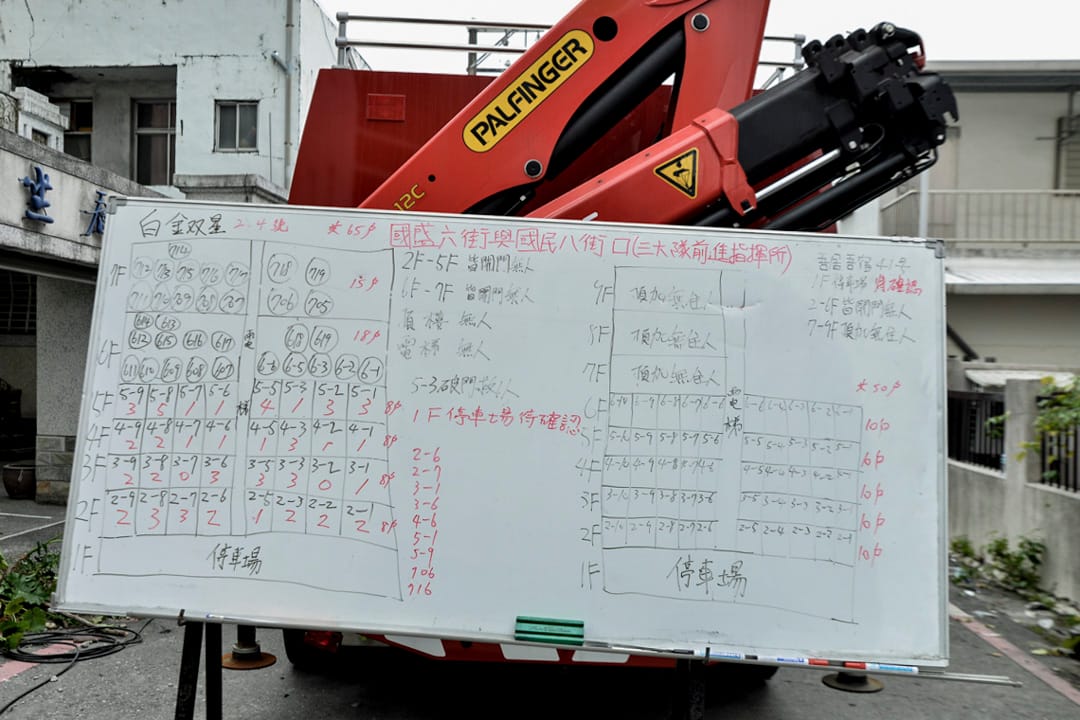 PALFINGER
12C
白金双星 2.4號 共65戶
國盛六街與國民八街口(三大隊前進指揮所)
7F
714
712 713 715 716 717
711 710 709 708 707
718 719
706 705
15戶
6F
614 613
612 615 616 617
611 610 609 608 607
618 619
6-6 6-5 6-3 6-2 6-1
18戶
電梯
5F
5-9 5-8 5-7 5-6
3 5 1 1
5-5 5-3 5-2 5-1
4 1 3 3
8戶
4F
4-9 4-8 4-7 4-6
2 2 1 1
4-5 4-3 4-2 4-1
8戶
3F
3-9 3-8 3-7 3-6
2 2 0 3
3-5 3-3 3-2 3-1
3 3 0 1
8戶
2F
2-9 2-8 2-7 2-6
2 3 3 2
2-5 2-3 2-2 2-1
1 2 2 2
8戶
1F
停車場
2F-5F 皆開門無人
6F-7F 皆開門無人
頂樓 無人
電梯 無人
5-3破門救人
1F停車場待確認
2-6
2-7
3-1
3-6
4-6
5-1
5-9
706
716
1F停車場 待確認
2-6F皆開門無人
7-9F頂加無住人
共50戶
9F 頂加無住人
8F 頂加無住人
7F 頂加無住人
電梯
6F
6-10 6-9 6-8 6-7 6-6
6-3 6-2 6-1
10戶
5F
5-10 5-9 5-8 5-7 5-6
5-5 5-4 5-3 5-2 5-1
10戶
4F
4-10 4-9 4-8 4-7 4-6
4-5 4-4 4-3 4-2 4-1
10戶
3F
3-10 3-9 3-8 3-7 3-6
3-5 3-4 3-3 3-2 3-1
10戶
2F
2-10 2-9 2-8 2-7 2-6
2-5 2-4 2-3 2-2 2-1
10戶
1F
停車場